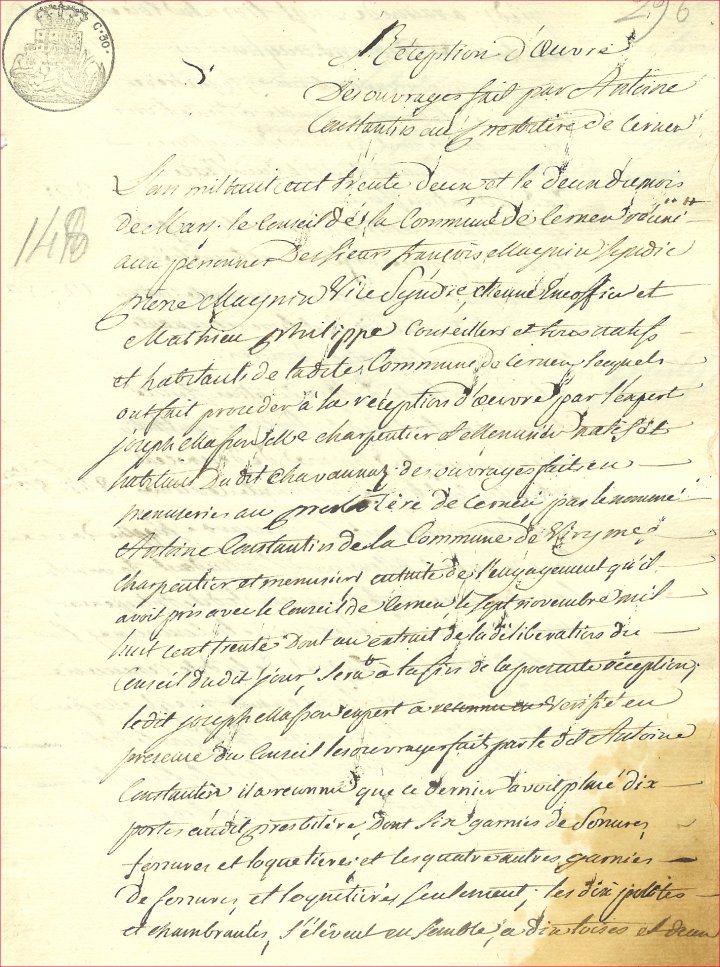 296
C. 50.
Réception d'Œuvre
Des ouvrages fait par Antoine
Constantin au presbitère de Cernex
148
L'an mil huit cent trente deux et le deux du mois
de Mars, le Conseil de la Commune de Cernex réuni
aux personnes Des Sieurs françois Magnin Syndic
pierre Magnin Vice Syndic, etienne Excoffier et
Mathieu philippe Conseillers et tous natifs
et habitants de ladite Commune de Cernex lesquels
ont fait proceder à la réception d'œuvre par l'expert
joseph Masson Me charpentier et Menusier natif et
habitant Du dit Chavannaz des ouvrages faits en
menuseries au presbitère de Cernex par le nommé
Antoine Constantin de la Commune de
charpentier et menusier ensuite de l'engagement qu'il
avoit pris avec le Conseil de Cernex le sept novembre mil
huit cent trente Dont un extrait de la déliberation du
Conseil du dit jour, sera à la fin de la présente réception;
le dit joseph Masson expert a reconnu ou Verifié en
presence du Conseil les ouvrages fait par le dit Antoine
Constantin il a reconnu que ce dernier avoit placé dix
portes audit presbitère, Dont six garnies de serrures,
ferrures et loquetières et les quatre autres garnies
De ferrures et loquetières seulement; les dix portes
et chambranles, s'élèvent ensemble, a dix toises et deux